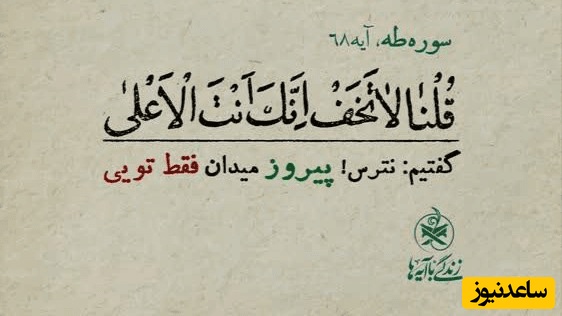 سوره طه، آیه ۶۸
قُلْنَا لَا تَخَفْ اِنَّكَ اَنْتَ الْاَعْلىٰ
گفتیم: نترس! پیروز میدان فقط تویی
زندگی با آیه‌ها
ساعدنیوز